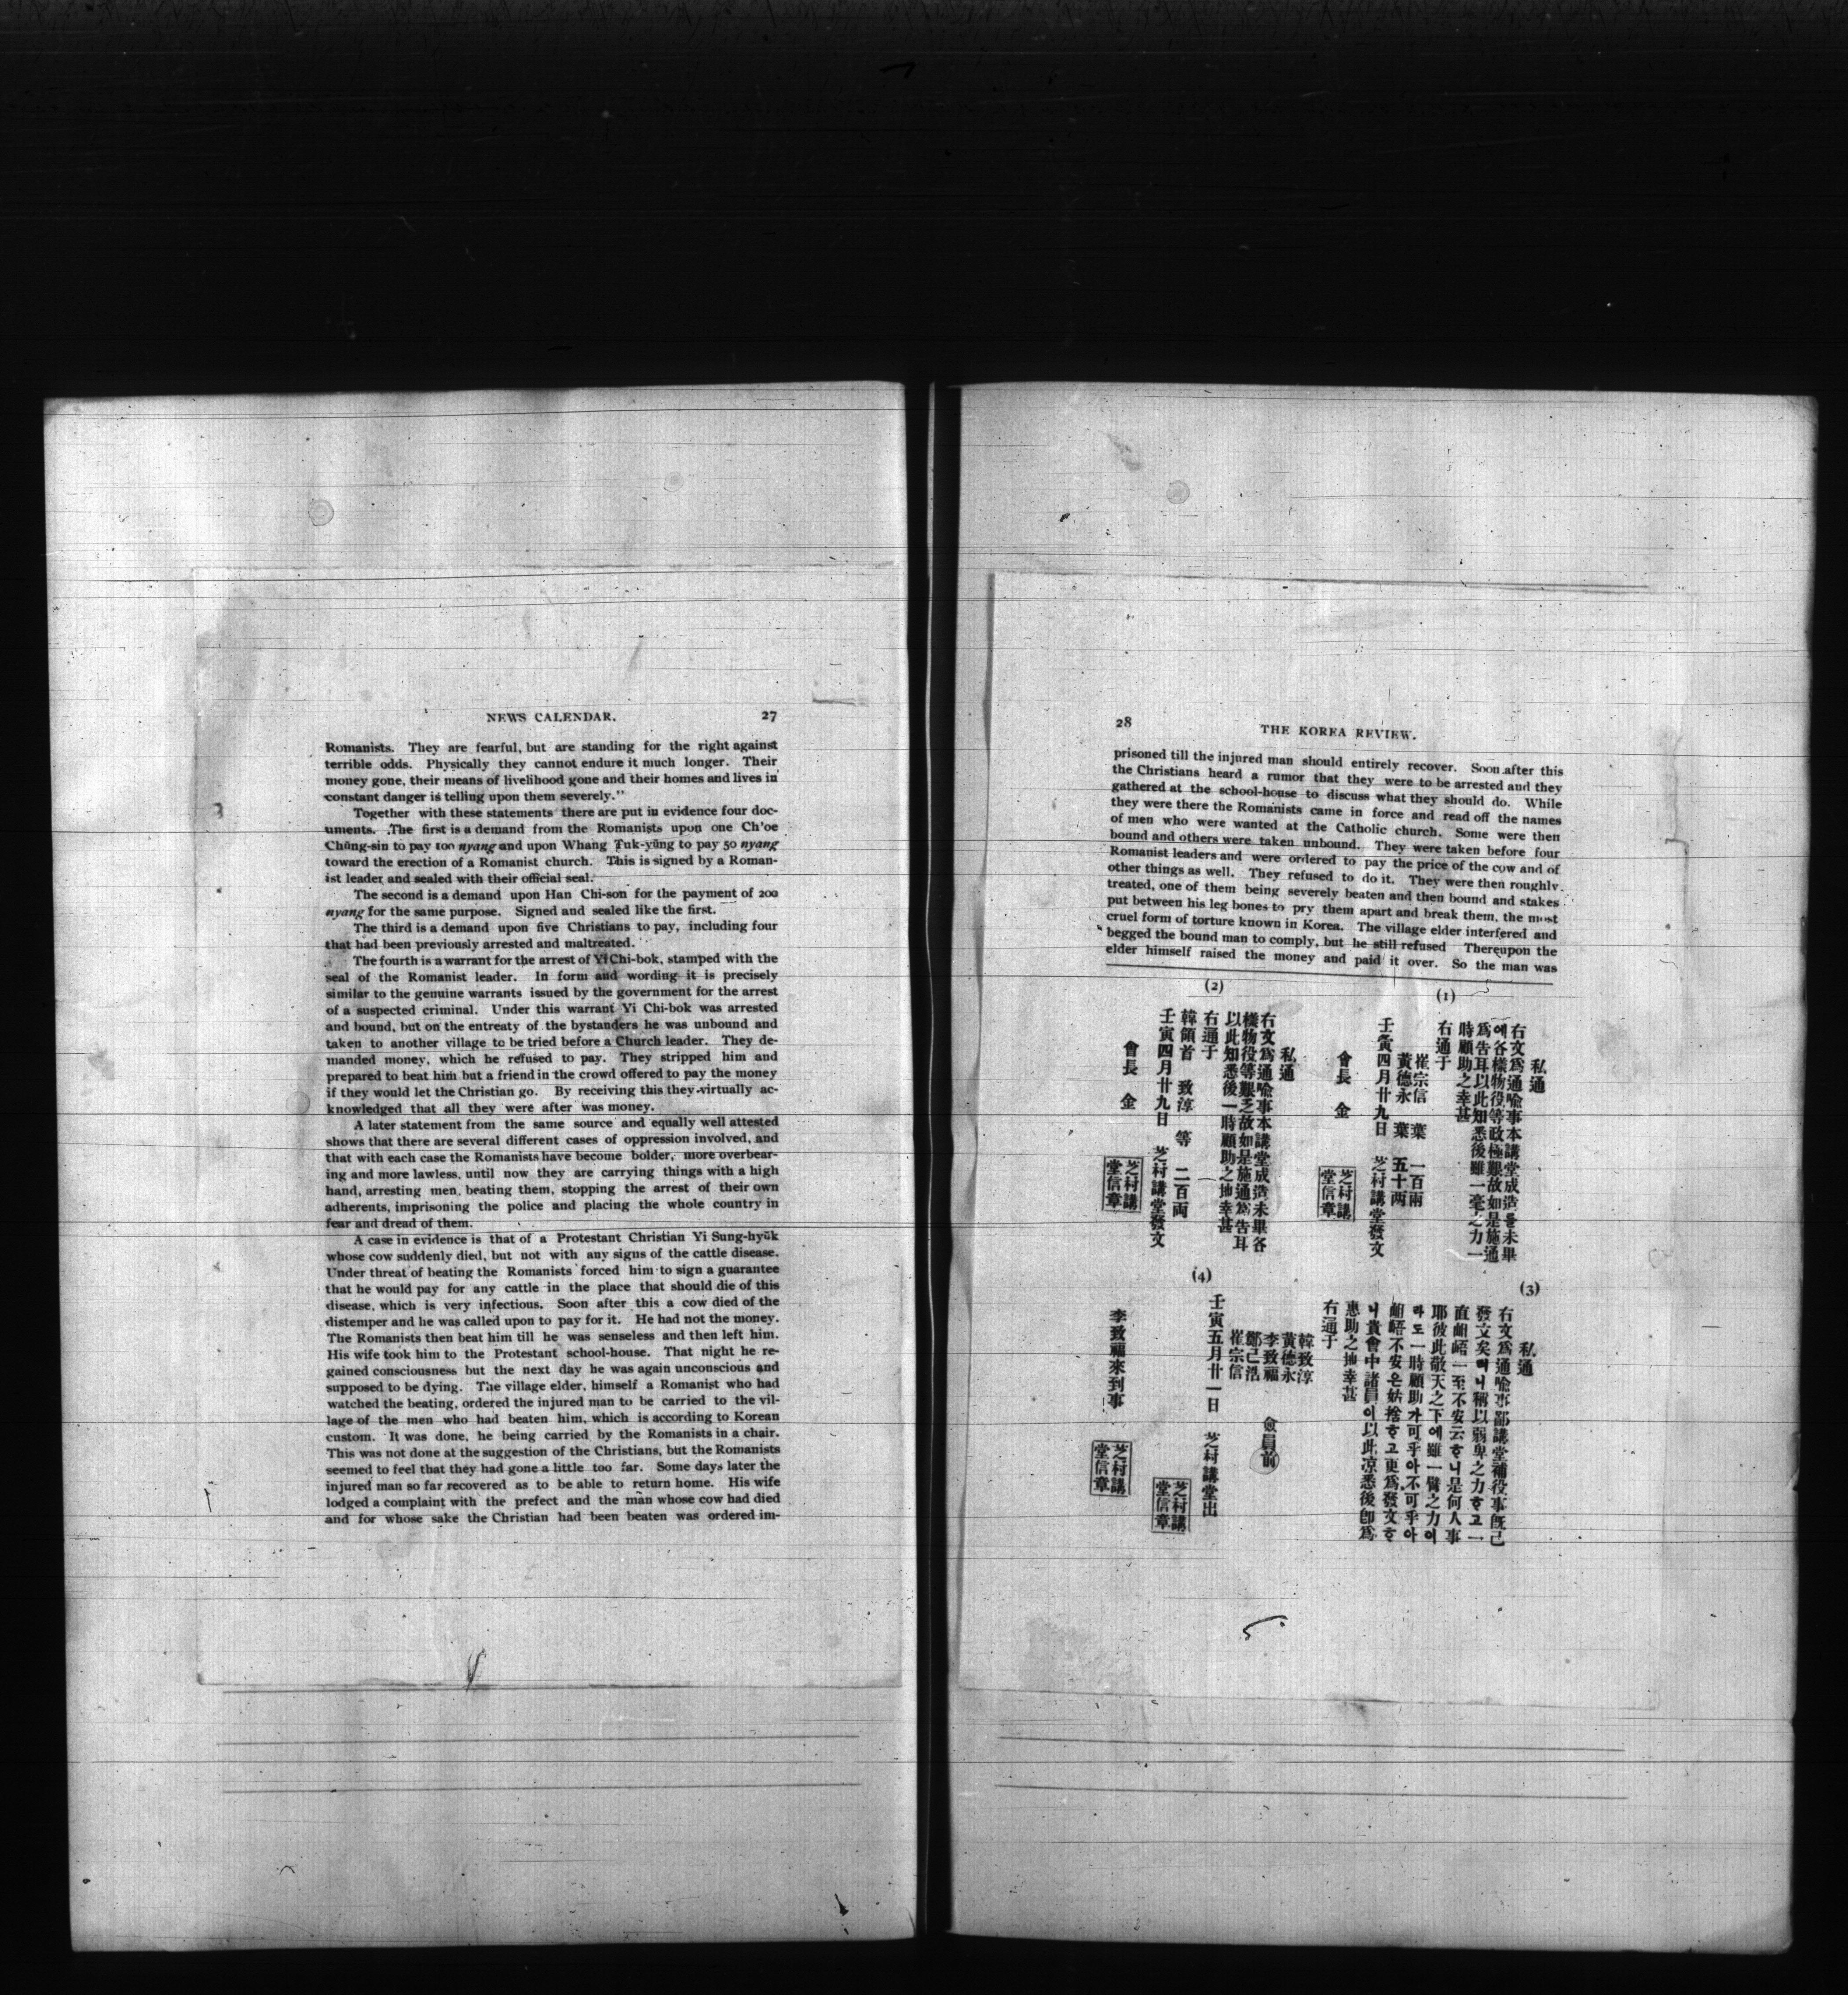 NEWS CALENDAR. 27
Romanists. They are fearful, but are standing for the right against
terrible odds. Physically they cannot endure it much longer. Their
money gone, their means of livelihood gone and their homes and lives in
constant danger is telling upon them severely."
Together with these statements there are put in evidence four doc-
uments. The first is a demand from the Romanists upon one Ch'oe
Chŭng-sin to pay 100 nyang and upon Whang Tuk-yŭng to pay 50 nyang
toward the erection of a Romanist church. This is signed by a Roman-
ist leader and sealed with their official seal.
The second is a demand upon Han Chi-son for the payment of 200
nyang for the same purpose. Signed and sealed like the first.
The third is a demand upon five Christians to pay, including four
that had been previously arrested and maltreated.
The fourth is a warrant for the arrest of Yi Chi-bok, stamped with the
seal of the Romanist leader. In form and wording it is precisely
similar to the genuine warrants issued by the government for the arrest
of a suspected criminal. Under this warrant Yi Chi-bok was arrested
and bound, but on the entreaty of the bystanders he was unbound and
taken to another village to be tried before a Church leader. They de-
manded money, which he refused to pay. They stripped him and
prepared to beat him but a friend in the crowd offered to pay the money
if they would let the Christian go. By receiving this they virtually ac-
knowledged that all they were after was money.
A later statement from the same source and equally well attested
shows that there are several different cases of oppression involved, and
that with each case the Romanists have become bolder, more overbear-
ing and more lawless, until now they are carrying things with a high
hand, arresting men, beating them, stopping the arrest of their own
adherents, imprisoning the police and placing the whole country in
fear and dread of them.
A case in evidence is that of a Protestant Christian Yi Sung-hyŭk
whose cow suddenly died, but not with any signs of the cattle disease.
Under threat of beating the Romanists forced him to sign a guarantee
that he would pay for any cattle in the place that should die of this
disease, which is very infectious. Soon after this a cow died of the
distemper and he was called upon to pay for it. He had not the money.
The Romanists then beat him till he was senseless and then left him.
His wife took him to the Protestant school-house. That night he re-
gained consciousness but the next day he was again unconscious and
supposed to be dying. The village elder, himself a Romanist who had
watched the beating, ordered the injured man to be carried to the vil-
lage of the men who had beaten him, which is according to Korean
custom. It was done, he being carried by the Romanists in a chair.
This was not done at the suggestion of the Christians, but the Romanists
seemed to feel that they had gone a little too far. Some days later the
injured man so far recovered as to be able to return home. His wife
lodged a complaint with the prefect and the man whose cow had died
and for whose sake the Christian had been beaten was ordered im-
28 THE KOREA REVIEW.
prisoned till the injured man should entirely recover. Soon after this
the Christians heard a rumor that they were to be arrested and they
gathered at the school-house to discuss what they should do. While
they were there the Romanists came in force and read off the names
of men who were wanted at the Catholic church. Some were then
bound and others were taken unbound. They were taken before four
Romanist leaders and were ordered to pay the price of the cow and of
other things as well. They refused to do it. They were then roughly
treated, one of them being severely beaten and then bound and stakes
put between his leg bones to pry them apart and break them, the most
cruel form of torture known in Korea. The village elder interfered and
begged the bound man to comply, but he still refused Thereupon the
elder himself raised the money and paid it over. So the man was
(1)
私通
右文爲通喩事本講堂成造를未畢
에各樣物役等政極艱故如是施通
爲告耳以此知悉後雖一毫之力一
時顧助之幸甚
右通于
崔宗信 葉 一百兩
黃德永 葉 五十両
壬寅四月廿九日 芝村講堂發文
會長 金
芝村講
堂信章
(2)
私通
右文爲通喩事本講堂成造未畢各
樣物役等艱乏故如是施通爲告耳
以此知悉後一時顧助之地幸甚
右通于
韓領首 致淳 等 二百両
壬寅四月廿九日 芝村講堂發文
會長 金
芝村講
堂信章
(3)
私通
右文爲通喩事鄙講堂補役事旣已
發文矣러니稱以弱卑之力ᄒᆞ고一
直齟齬一至不安云ᄒᆞ니是何人事
耶彼此敬天之下에雖一臂之力이
라도一時顧助가可乎아不可乎아
齟齬不安은姑捨ᄒᆞ고更爲發文ᄒᆞ
니貴會中諸員이以此凉悉後卽爲
惠助之地幸甚
右通于
韓致淳
黃德永
李致福
鄭己浩
崔宗信
僉員前
壬寅五月廿一日 芝村講堂出
芝村講
堂信章
(4)
李致福來到事
芝村講
堂信章